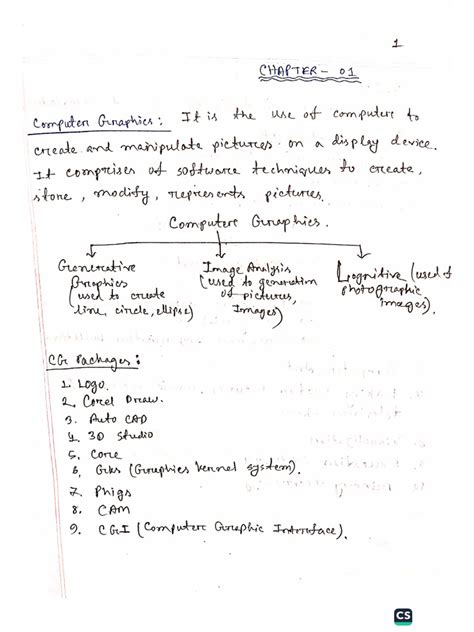 1
CHAPTER - 01
Computer Graphics: It is the use of computer to
create and manipulate pictures on a display device.
It comprises of software techniques to create,
store, modify, represents pictures.
Computer Graphics.
Generative
Graphics
(used to create
line, circle, ellipse)
Image Analysis
(used to generation
of pictures,
Images)
Cognitive (used of
photographic
images).
CG Packages:
1. Logo.
2. Corel Draw.
3. Auto CAD
4. 3D Studio
5. Core
6. Gks (Graphics kernel system).
7. Phigs
8. CAM
9. CGI (Computer Graphic Interface).
CS